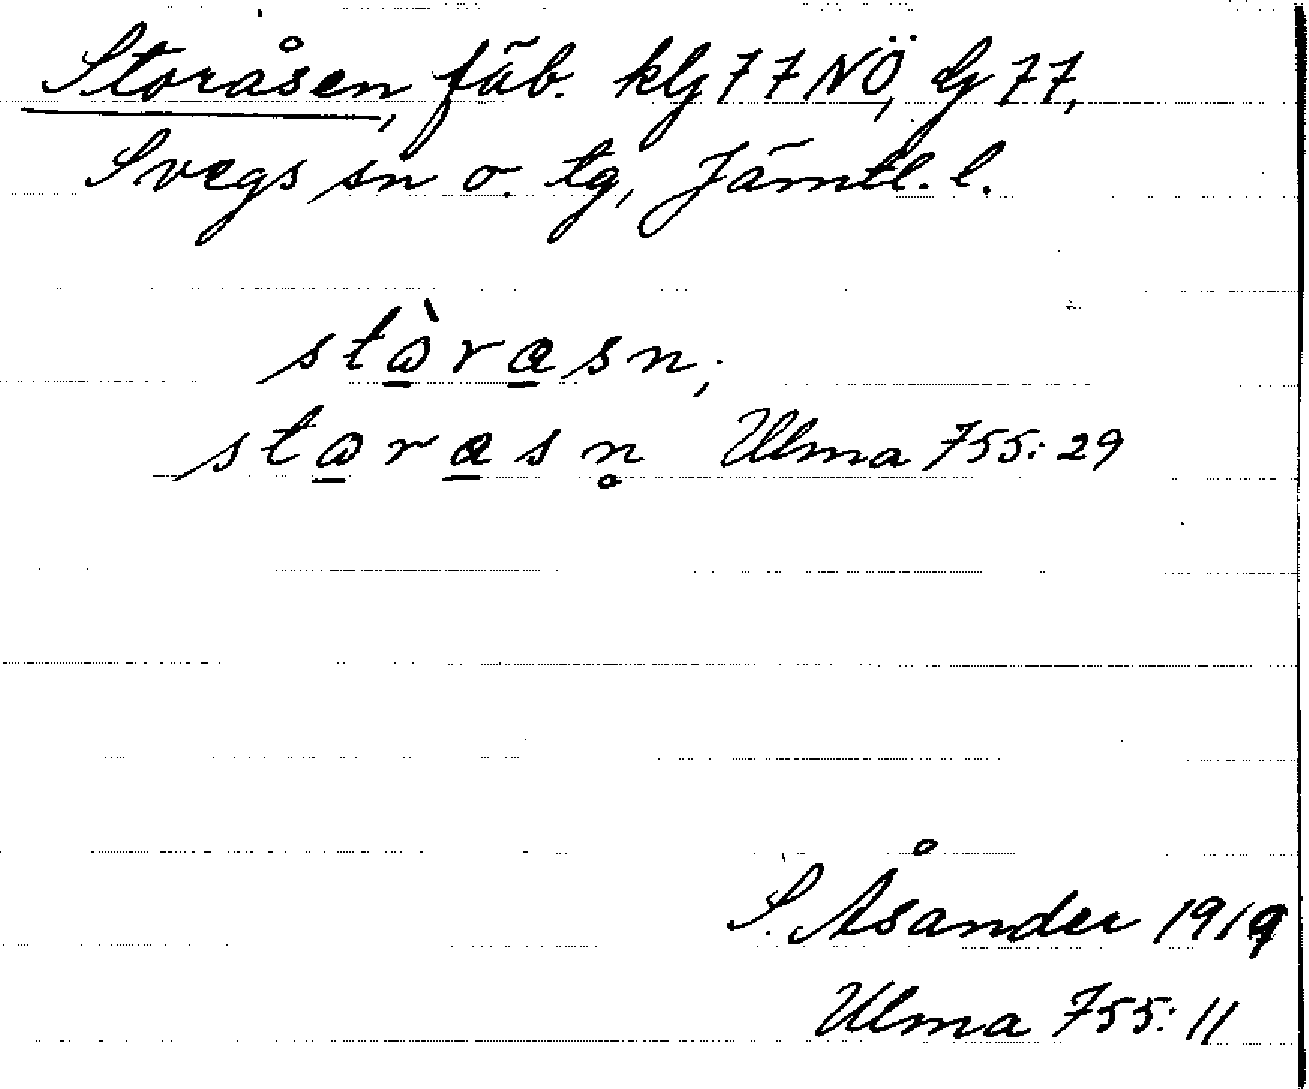 Storåsen, fäb. klg 77 NÖ, lg 77,
Svegs sn o. tg, Jämtl. l.
stàrasn,
starasn̥ Ulma 755:29
S. Åsander 1919
Ulma 755:11